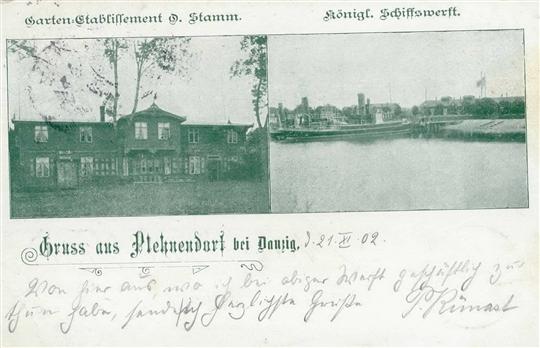 Garten-Etablissement O. Stamm.
Königl. Schiffswerft.
Gruss aus Plehnendorf bei Danzig, d. 21. XI. 02.
Von hier aus, wo ich bei obiger Werft geschäftlich zu
thun habe, sende ich herzlichste Grüße